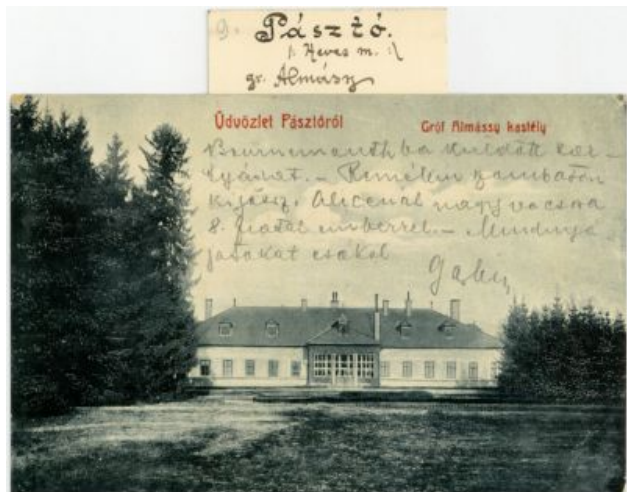 9. Pásztó.
/: Heves m. :/
gr. Almásy
Üdvözlet Pásztóról
Gróf Almássy kastély
Bournemouthba küldött kár-
tyámat. - Remélem szombaton
kijössz. Alicenál nagy vacsora
8. fiatal emberrel. - Mindnyá
jatokat csókol
Gaby